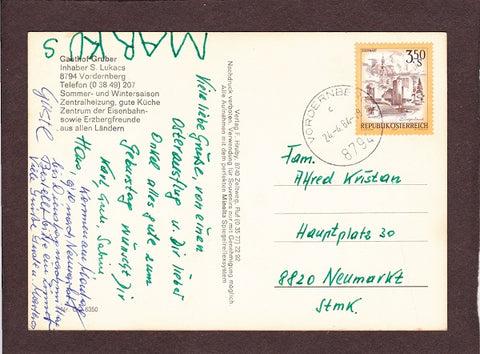 MARKUS
Gasthof Gruber
Inhaber S. Lukacs
8794 Vordernberg
Telefon (0 38 49) 207
Sommer- und Wintersaison
Zentralheizung, gute Küche
Zentrum der Eisenbahn-
sowie Erzbergfreunde
aus allen Ländern
6350
Viele liebe Grüße, von einem
Osterausflug u. Dir lieber
Onkel alles gute zum
Geburtstag wünscht Dir
Karl Gute
Kommen am
Verlag F. Hieby, 8740 Zeltweg, Ruf (0 35 77) 22 92
Nachdruck verboten. Verwendung für Souvenirs nur mit Genehmigung möglich
Aufnahmen mit dem perfekten Minolta Spiegelreflexsystem
3,50
S
REPUBLIK ÖSTERREICH
VORDERNBERG
24.-4.84
8794
Fam.
Alfred Kristan
Hauptplatz 30
8820 Neumarkt
Stmk.